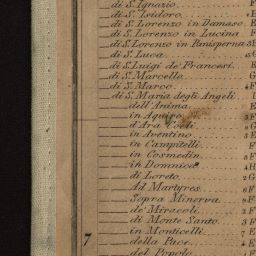 di S. Ignazio
di S. Isidoro
di S. Lorenzo in Damaso
di S. Lorenzo in Lucina F
di S. Lorenzo in Panisperna
di S. Luca G
di S. Luigi de' Francesi
di S. Marcello G
di S. Marco F
di S. Maria degli Angeli
dell'Anima E
in Aquiro F
d'Ara Coeli G
in Aventino
in Campitelli F
in Cosmedin F
in Domnica F
di Loreto G
Ad Martyres F
Sopra Minerva F
de' Miracoli F
di Monte Santo F
in Monticelli E
7 della Pace F
del Popolo